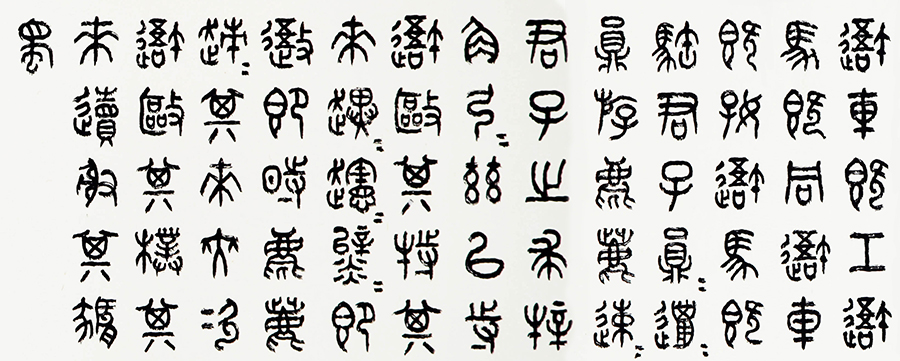 車既工
馬既同車
既好馬既
君子員=邋=
員斿麀鹿速=
君子之求
角弓=茲以寺
敺其特其
來趩=即
即時麀鹿
趚=其來大次
敺其樸其
來射其豜
蜀